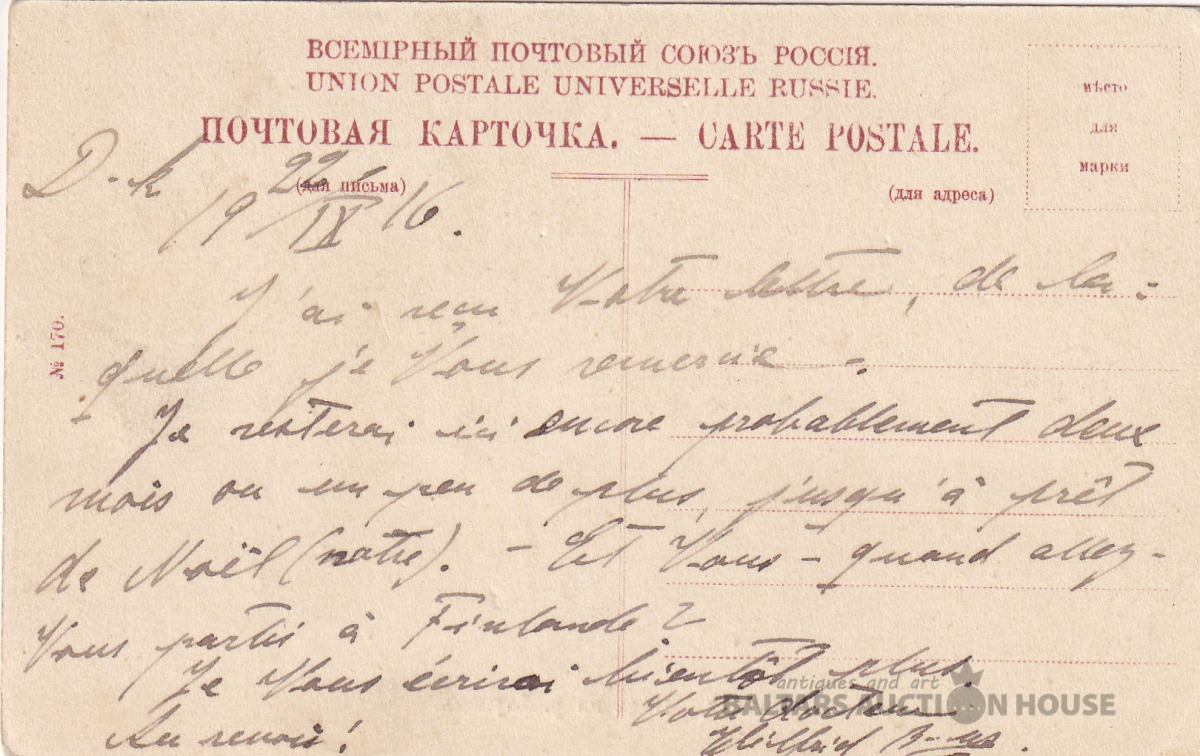 ВСЕМІРНЫЙ ПОЧТОВЫЙ СОЮЗЪ РОССІЯ.
UNION POSTALE UNIVERSELLE RUSSIE.
ПОЧТОВАЯ КАРТОЧКА. — CARTE POSTALE.
мѣсто
для
марки
(для письма)
(для адреса)
№ 170.
D-k
19 22/IX 16.
J'ai reçu Votre lettre, de la-
quelle je Vous remercie.
Je resterai ici encore probablement deux
mois ou un peu de plus, jusqu'à prêt
de Noël (notre). – Et Vous – quand allez-
Vous partir à Finlande?
Je Vous écrirai bientôt plus.
Au revoir!
Votre
antiques and art
BALTARS AUCTION HOUSE